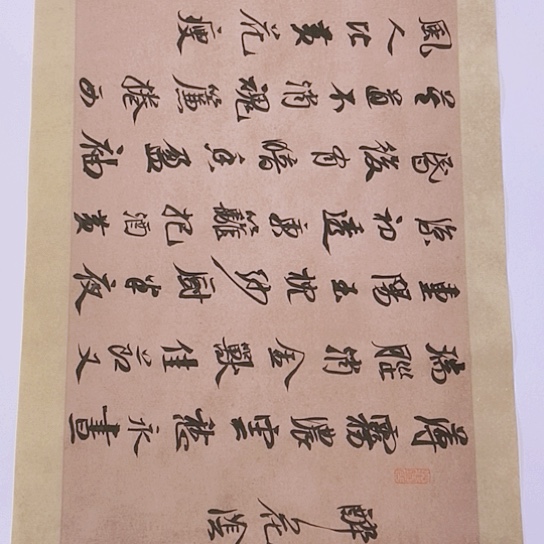 醉花陰
薄霧濃雲愁永晝
瑞腦消金獸佳節又
重陽玉枕紗廚半夜
涼初透東籬把酒黃
昏後有暗香盈袖
莫道不消魂簾捲西
風人比黃花瘦